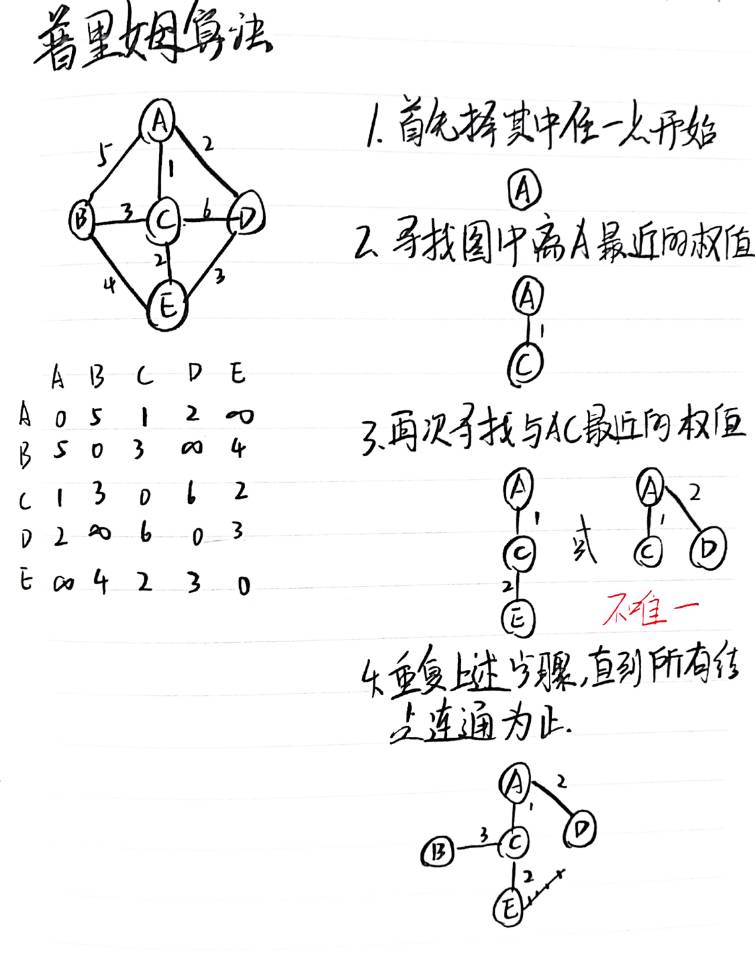 普里姆算法
A
5
1
2
B
3
C
6
D
2
4
3
E
A B C D E
A 0 5 1 2 ∞
B 5 0 3 ∞ 4
C 1 3 0 6 2
D 2 ∞ 6 0 3
E ∞ 4 2 3 0
1. 首先择其中任一点开始
A
2. 寻找图中离A最近的权值
A
1
C
3. 再次寻找与AC最近的权值
A
1
C
2
E
或
A 2
1
C D
不唯一
4. 重复上述步骤,直到所有结
点连通为止.
A 2
1
D
B 3 C
2
E